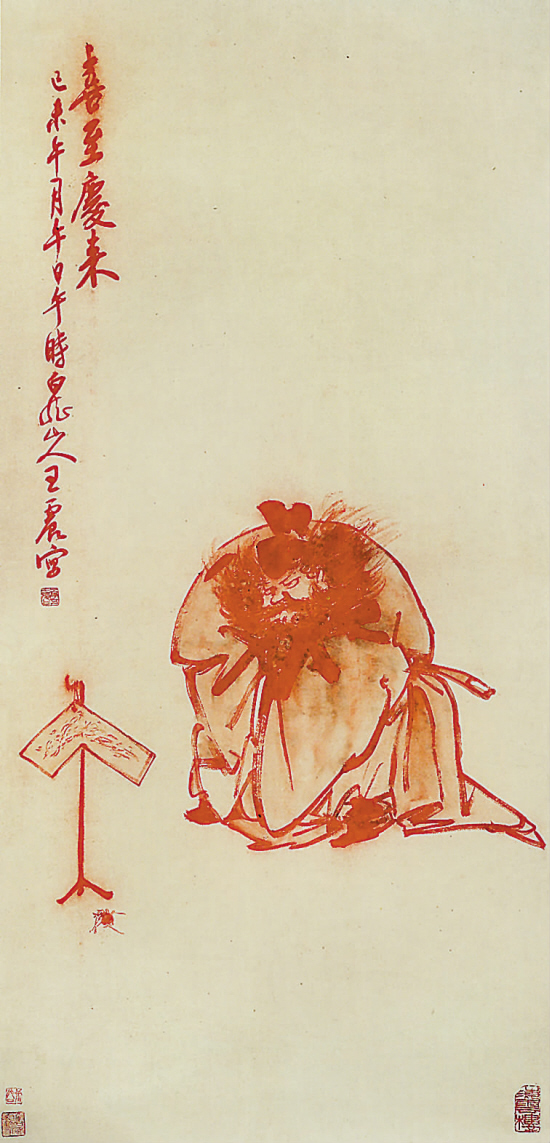 喜至慶来
己未午月午日午時白龍山人王震寫